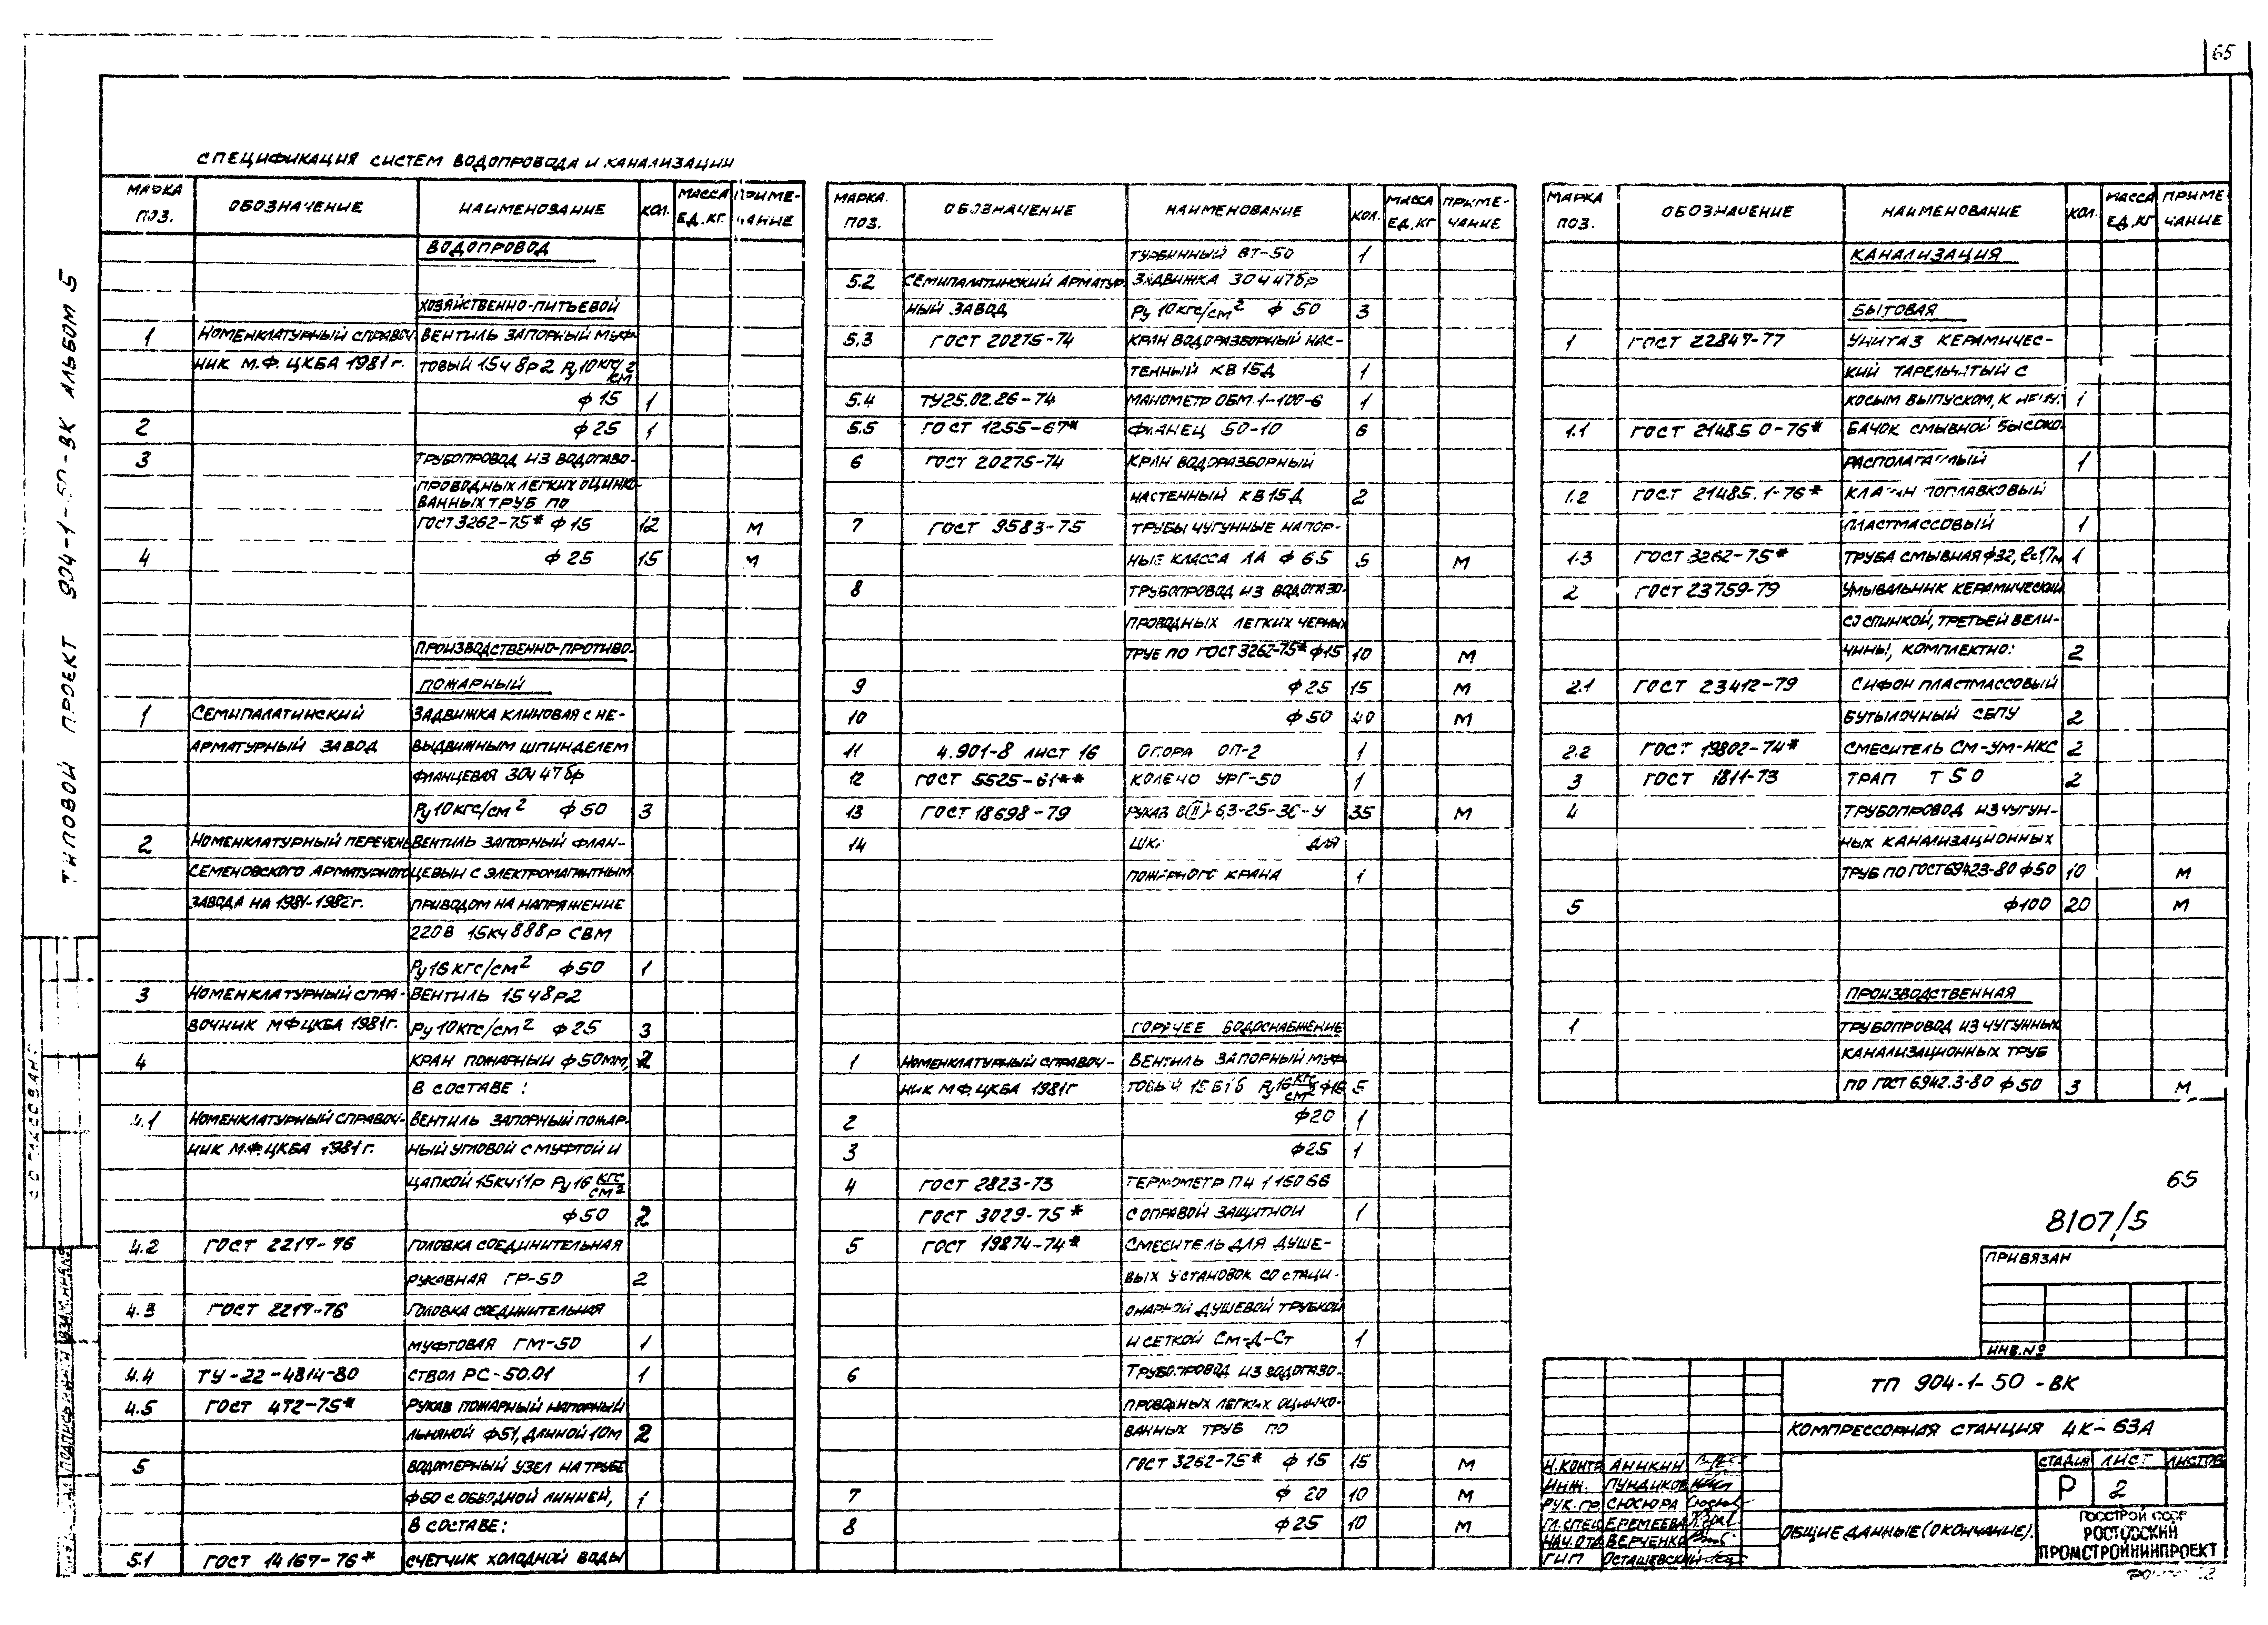 65
ТИПОВОЙ ПРОЕКТ 904-1-50-ВК АЛЬБОМ 5
СПЕЦИФИКАЦИЯ СИСТЕМ ВОДОПРОВОДА И КАНАЛИЗАЦИИ
МАРКА ПОЗ. ОБОЗНАЧЕНИЕ НАИМЕНОВАНИЕ КОЛ. МАССА ЕД.КГ ПРИМЕ-ЧАНИЕ
ВОДОПРОВОД
ХОЗЯЙСТВЕННО-ПИТЬЕВОЙ
1 НОМЕНКЛАТУРНЫЙ СПРАВОЧ- ВЕНТИЛЬ ЗАПОРНЫЙ МУФ-
НИК М.Ф. ЦКБА 1981г. ТОВЫЙ 15ч 8р2 Ру10 кгс/см2
ф15 1
2 ф25 1
3 ТРУБОПРОВОД ИЗ ВОДОГАЗО-
ПРОВОДНЫХ ЛЕГКИХ ОЦИНКО-
ВАННЫХ ТРУБ ПО
ГОСТ 3262-75* ф15 12 М
4 ф25 15 М
ПРОИЗВОДСТВЕННО-ПРОТИВО-
ПОЖАРНЫЙ
1 СЕМИПАЛАТИНСКИЙ ЗАДВИЖКА КЛИНОВАЯ С НЕ-
АРМАТУРНЫЙ ЗАВОД ВЫДВИЖНЫМ ШПИНДЕЛЕМ
ФЛАНЦЕВАЯ 30ч 47бр
Ру10кгс/см2 ф50 3
2 НОМЕНКЛАТУРНЫЙ ПЕРЕЧЕНЬ ВЕНТИЛЬ ЗАПОРНЫЙ ФЛАН-
СЕМЕНОВСКОГО АРМАТУРНОГО ЦЕВЫЙ С ЭЛЕКТРОМАГНИТНЫМ
ЗАВОДА НА 1981-1982г. ПРИВОДОМ НА НАПРЯЖЕНИЕ
220В 15кч 888р СВМ
Ру16кгс/см2 ф50 1
3 НОМЕНКЛАТУРНЫЙ СПРА- ВЕНТИЛЬ 15ч8р2
ВОЧНИК МФ ЦКБА 1981г. Ру10кгс/см2 ф25 3
4 КРАН ПОЖАРНЫЙ ф50мм, 2
В СОСТАВЕ:
4.1 НОМЕНКЛАТУРНЫЙ СПРАВОЧ- ВЕНТИЛЬ ЗАПОРНЫЙ ПОЖАР-
НИК М.Ф. ЦКБА 1981г. НЫЙ УГЛОВОЙ С МУФТОЙ И
ЦАПКОЙ 15кч11р Ру16 кгс/см2
ф50 2
4.2 ГОСТ 2217-76 ГОЛОВКА СОЕДИНИТЕЛЬНАЯ
РУКАВНАЯ ГР-50 2
4.3 ГОСТ 2217-76 ГОЛОВКА СОЕДИНИТЕЛЬНАЯ
МУФТОВАЯ ГМ-50 1
4.4 ТУ-22-4814-80 СТВОЛ РС-50.01 1
4.5 ГОСТ 472-75* РУКАВ ПОЖАРНЫЙ НАПОРНЫЙ
ЛЬНЯНОЙ ф51, ДЛИНОЙ 10м 2
5 ВОДОМЕРНЫЙ УЗЕЛ НА ТРУБЕ
ф50 С ОБВОДНОЙ ЛИНИЕЙ, 1
В СОСТАВЕ:
5.1 ГОСТ 14167-76* СЧЕТЧИК ХОЛОДНОЙ ВОДЫ
МАРКА. ПОЗ. ОБОЗНАЧЕНИЕ НАИМЕНОВАНИЕ КОЛ. МАССА ЕД.КГ ПРИМЕ-ЧАНИЕ
ТУРБИННЫЙ ВТ-50 1
5.2 СЕМИПАЛАТИНСКИЙ АРМАТУР- ЗАДВИЖКА 30ч47бр
НЫЙ ЗАВОД Ру10кгс/см2 ф50 3
5.3 ГОСТ 20275-74 КРАН ВОДОРАЗБОРНЫЙ НАС-
ТЕННЫЙ КВ15Д 1
5.4 ТУ25.02.26-74 МАНОМЕТР ОБМ.1-100-6 1
5.5 ГОСТ 1255-67* ФЛАНЕЦ 50-10 6
6 ГОСТ 20275-74 КРАН ВОДОРАЗБОРНЫЙ
НАСТЕННЫЙ КВ15Д 2
7 ГОСТ 9583-75 ТРУБЫ ЧУГУННЫЕ НАПОР-
НЫЕ КЛАССА ЛА ф65 5 М
8 ТРУБОПРОВОД ИЗ ВОДОГАЗО-
ПРОВОДНЫХ ЛЕГКИХ ЧЕРНЫХ
ТРУБ ПО ГОСТ 3262-75* ф15 10 М
9 ф25 15 М
10 ф50 40 М
11 4.901-8 ЛИСТ 16 ОПОРА ОП-2 1
12 ГОСТ 5525-61** КОЛЕНО УРГ-50 1
13 ГОСТ 18698-79 РУКАВ В(II)-6,3-25-36-У 35 М
14 ДЛЯ
ПОЖАРНОГО КРАНА 1
ГОРЯЧЕЕ ВОДОСНАБЖЕНИЕ
1 НОМЕНКЛАТУРНЫЙ СПРАВОЧ- ВЕНТИЛЬ ЗАПОРНЫЙ МУФ-
НИК МФ ЦКБА 1981г ТОВЫЙ 15Б1б Ру16 кгс/см2 ф15 5
2 ф20 1
3 ф25 1
4 ГОСТ 2823-73 ТЕРМОМЕТР П4 1 160 66
ГОСТ 3029-75* С ОПРАВОЙ ЗАЩИТНОЙ 1
5 ГОСТ 19874-74* СМЕСИТЕЛЬ ДЛЯ ДУШЕ-
ВЫХ УСТАНОВОК СО СТАЦИ-
ОНАРНОЙ ДУШЕВОЙ ТРУБКОЙ
И СЕТКОЙ См-Д-Ст 1
6 ТРУБОПРОВОД ИЗ ВОДОГАЗО-
ПРОВОДНЫХ ЛЕГКИХ ОЦИНКО-
ВАННЫХ ТРУБ ПО
ГОСТ 3262-75* ф15 15 М
7 ф20 10 М
8 ф25 10 М
МАРКА ПОЗ. ОБОЗНАЧЕНИЕ НАИМЕНОВАНИЕ КОЛ. МАССА ЕД.КГ ПРИМЕ-ЧАНИЕ
КАНАЛИЗАЦИЯ
БЫТОВАЯ
1 ГОСТ 22847-77 УНИТАЗ КЕРАМИЧЕС-
КИЙ ТАРЕЛЬЧАТЫЙ С
КОСЫМ ВЫПУСКОМ, К 1
1.1 ГОСТ 21485 0-76* БАЧОК СМЫВНОЙ ВЫСОКО-
РАСПОЛАГАЕМЫЙ 1
1.2 ГОСТ 21485.1-76* КЛАПАН ПОПЛАВКОВЫЙ
ПЛАСТМАССОВЫЙ 1
1.3 ГОСТ 3262-75* ТРУБА СМЫВНАЯ ф32, ℓ=1,7м 1
2 ГОСТ 23759-79 УМЫВАЛЬНИК КЕРАМИЧЕСКИЙ
СО СПИНКОЙ, ТРЕТЬЕЙ ВЕЛИ-
ЧИНЫ, КОМПЛЕКТНО: 2
2.1 ГОСТ 23412-79 СИФОН ПЛАСТМАССОВЫЙ
БУТЫЛОЧНЫЙ СБПУ 2
2.2 ГОСТ 19802-74* СМЕСИТЕЛЬ СМ-УМ-НКС 2
3 ГОСТ 1811-73 ТРАП Т50 2
4 ТРУБОПРОВОД ИЗ ЧУГУН-
НЫХ КАНАЛИЗАЦИОННЫХ
ТРУБ ПО ГОСТ 6942.3-80 ф50 10 М
5 ф100 20 М
ПРОИЗВОДСТВЕННАЯ
1 ТРУБОПРОВОД ИЗ ЧУГУННЫХ
КАНАЛИЗАЦИОННЫХ ТРУБ
ПО ГОСТ 6942.3-80 ф50 3 М
65
8107/5
ПРИВЯЗАН
ИНВ.№
ТП 904-1-50-ВК
КОМПРЕССОРНАЯ СТАНЦИЯ 4К-63А
СТАДИЯ ЛИСТ ЛИСТОВ
Р 2
Н.КОНТР. АНИКИН
ИНЖ. ПУНДИКОВ
РУК.ГР. СЮСЮРА
ГЛ.СПЕЦ ЕРЕМЕЕВА
НАЧ.ОТД ВЕРЧЕНКО
ГИП ОСТАШЕВСКИЙ
ОБЩИЕ ДАННЫЕ (ОКОНЧАНИЕ).
ГОССТРОЙ СССР
РОСТОВСКИЙ
ПРОМСТРОЙНИИПРОЕКТ